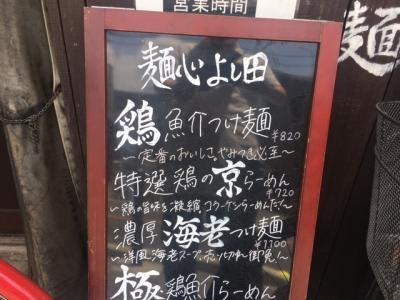 営業時間
麺
麺心よし田
鶏魚介つけ麺
¥820
〜定番のおいしさ。やみつき必至〜
特選鶏の京らーめん
¥720
〜鶏の旨味を凝縮、コラーゲンらーめんだ〜
濃厚海老つけ麺
¥1100
〜洋風海老スープ、売り切れ御免〜
極鶏魚介らーめん